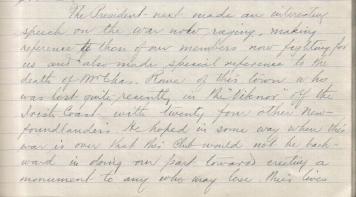 The President next made an interesting
speech on the war now raging, making
reference to those of our members now fighting for
us and also made special reference to the
death of Mr Chas. Howe of this town who
was lost quite recently in the "Viknor" off the
Irish Coast, with twenty four other New-
foundlanders. He hoped in some way when this
war is over that this Club would not be back-
ward in doing our part towards erecting a
monument to any who may lose their lives